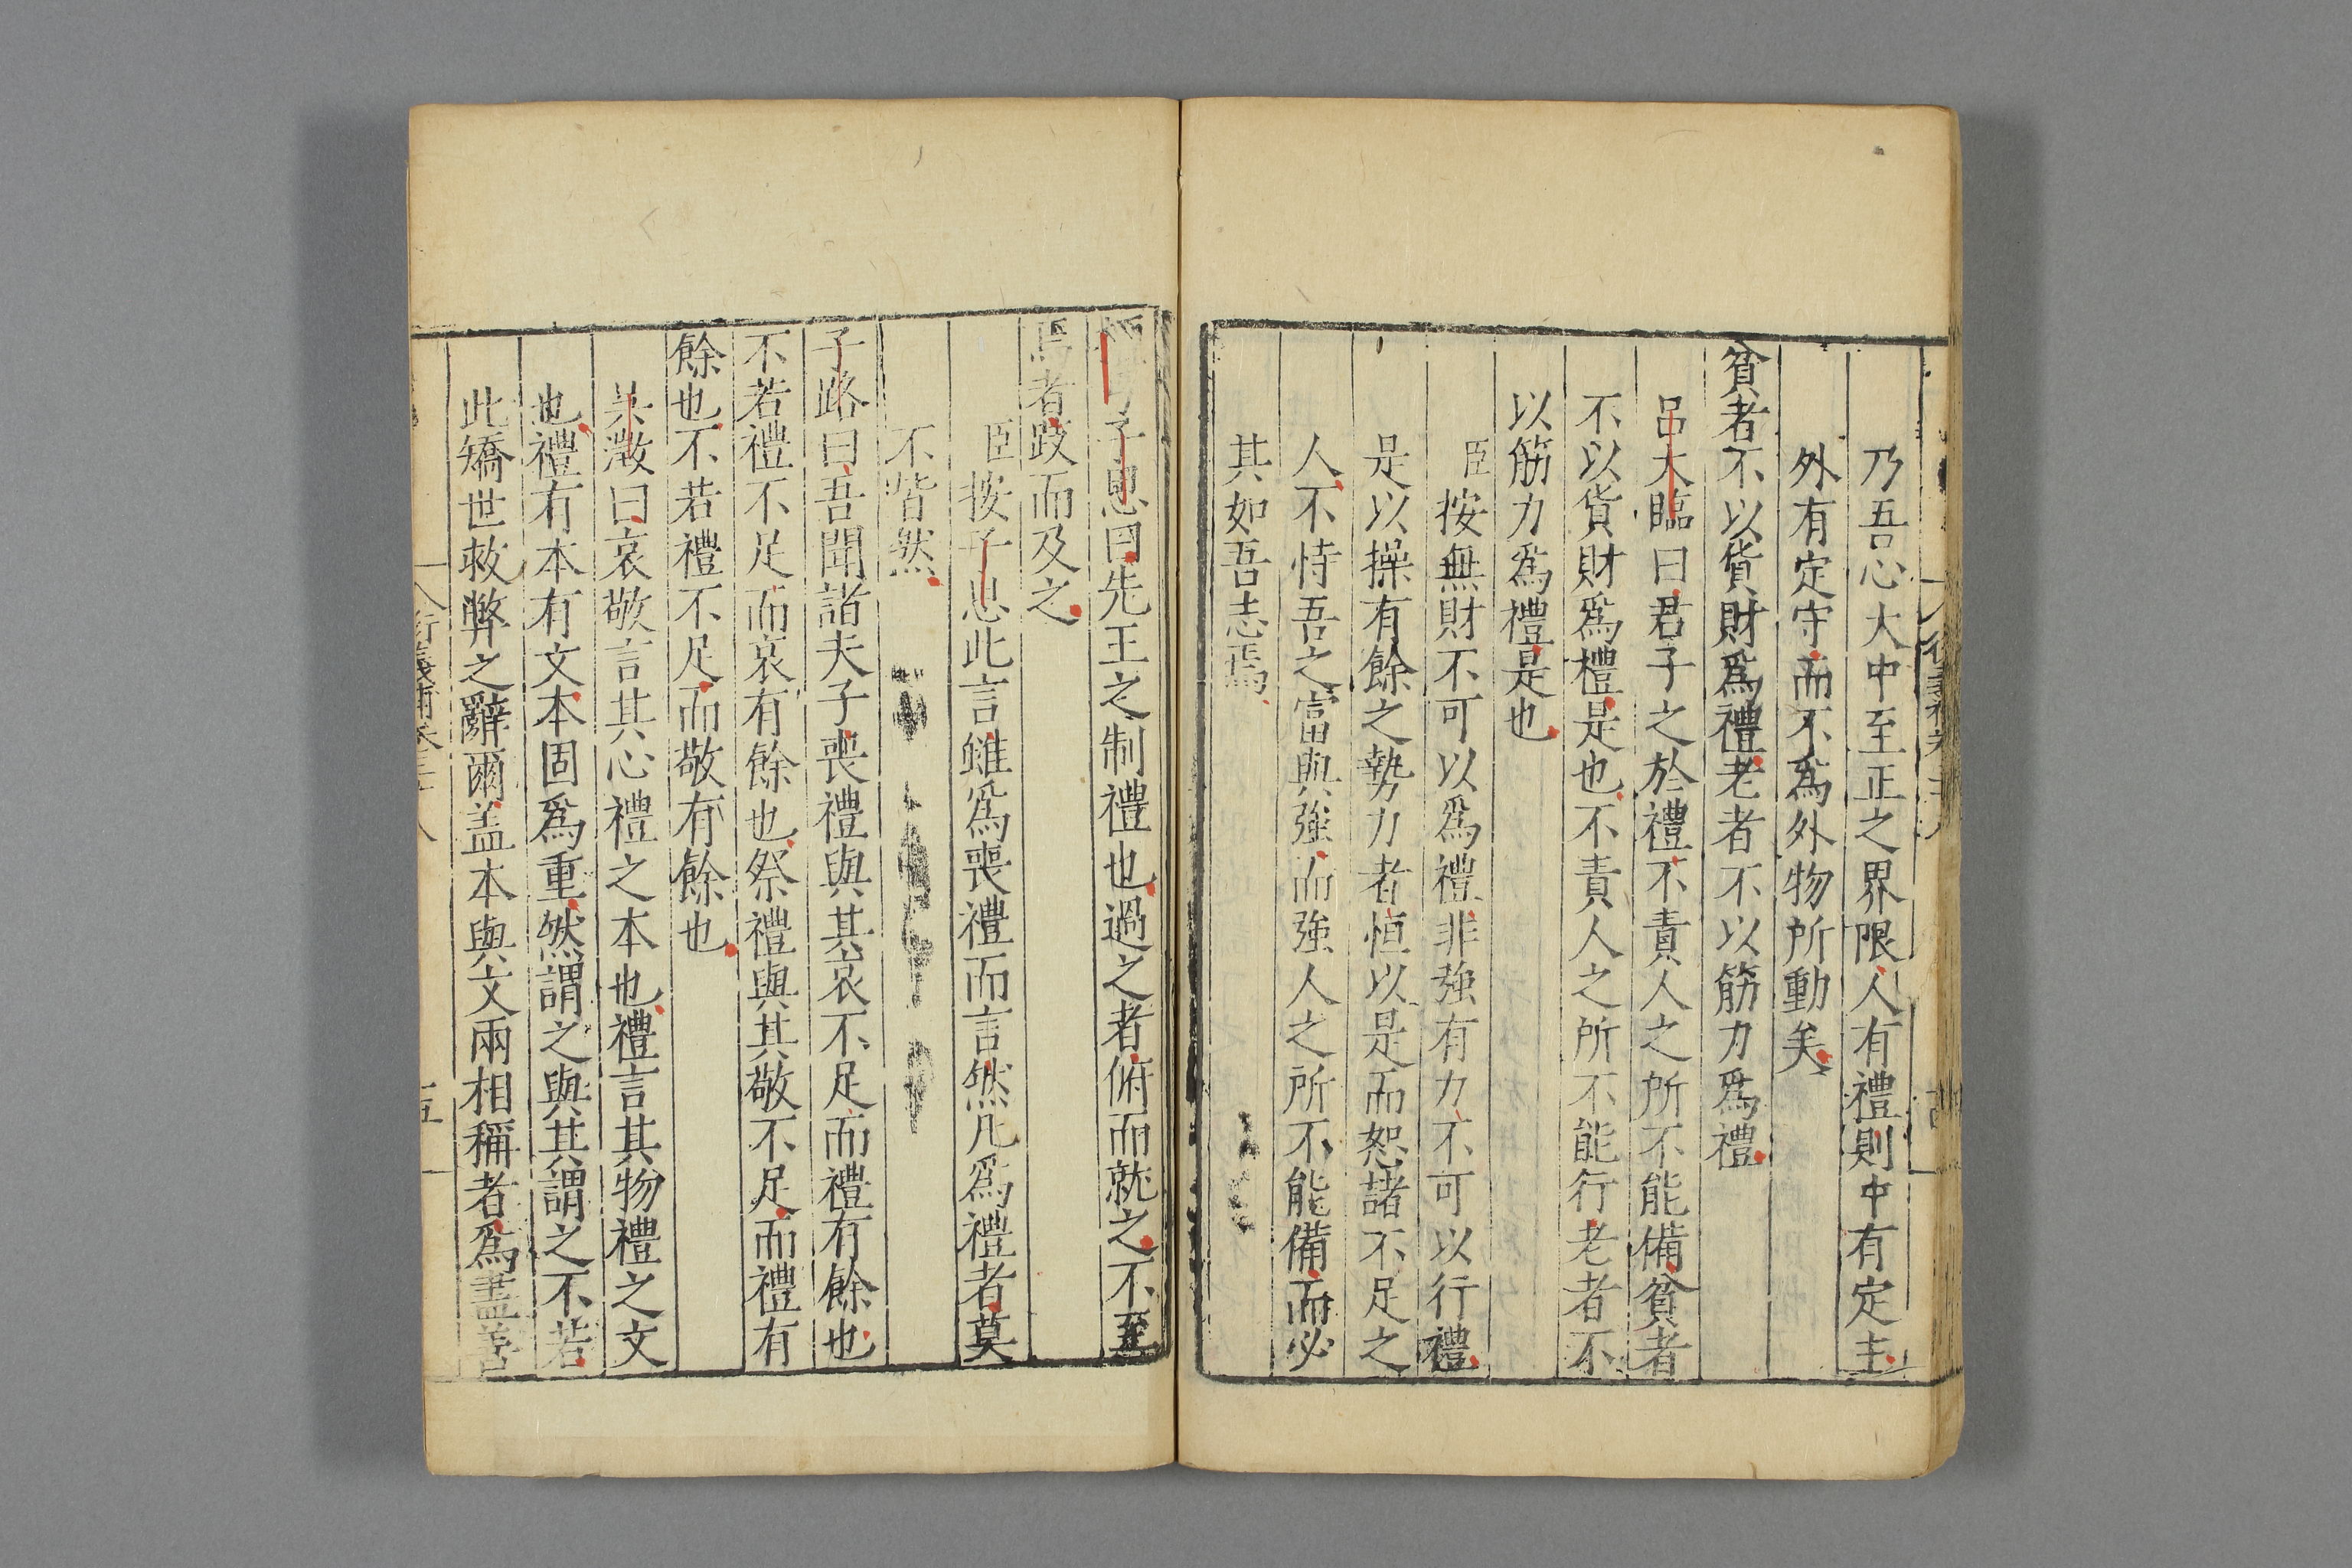 乃吾心大中至正之界限人有禮則中有定主
外有定守而不爲外物所動矣
貧者不以貨財爲禮老者不以筋力爲禮
呂大臨曰君子之於禮不責人之所不能備貧者
不以貨財爲禮是也不責人之所不能行老者不
以筋力爲禮是也
臣按無財不可以爲禮非強有力不可以行禮
是以操有餘之勢力者恒以是而恕諸不足之
人不恃吾之富與強而強人之所不能備而必
其如吾志焉
子思曰先王之制禮也過之者俯而就之不至
焉者跂而及之
臣按子思此言雖爲喪禮而言然凡爲禮者莫
不皆然
子路曰吾聞諸夫子喪禮與其哀不足而禮有餘也
不若禮不足而哀有餘也祭禮與其敬不足而禮有
餘也不若禮不足而敬有餘也
吳澂曰哀敬言其心禮之本也禮言其物禮之文
也禮有本有文本固爲重然謂之與其謂之不若
此矯世救弊之辭爾盖本與文兩相稱者爲盡善
衍義補卷三十八
五